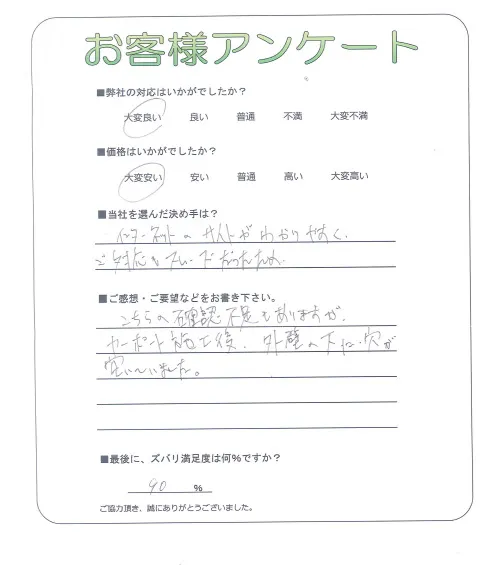 お客様アンケート
■弊社の対応はいかがでしたか？
大変良い 良い 普通 不満 大変不満
■価格はいかがでしたか？
大変安い 安い 普通 高い 大変高い
■当社を選んだ決め手は？
インターネットのサイトがわかりやすく、
ご対応もスムーズだったため
■ご感想・ご要望などをお書き下さい。
こちらの確認不足もありますが、
カーポート施工後、外壁の下に穴が
空いていました。
■最後に、ズバリ満足度は何％ですか？
90 ％
ご協力頂き、誠にありがとうございました。